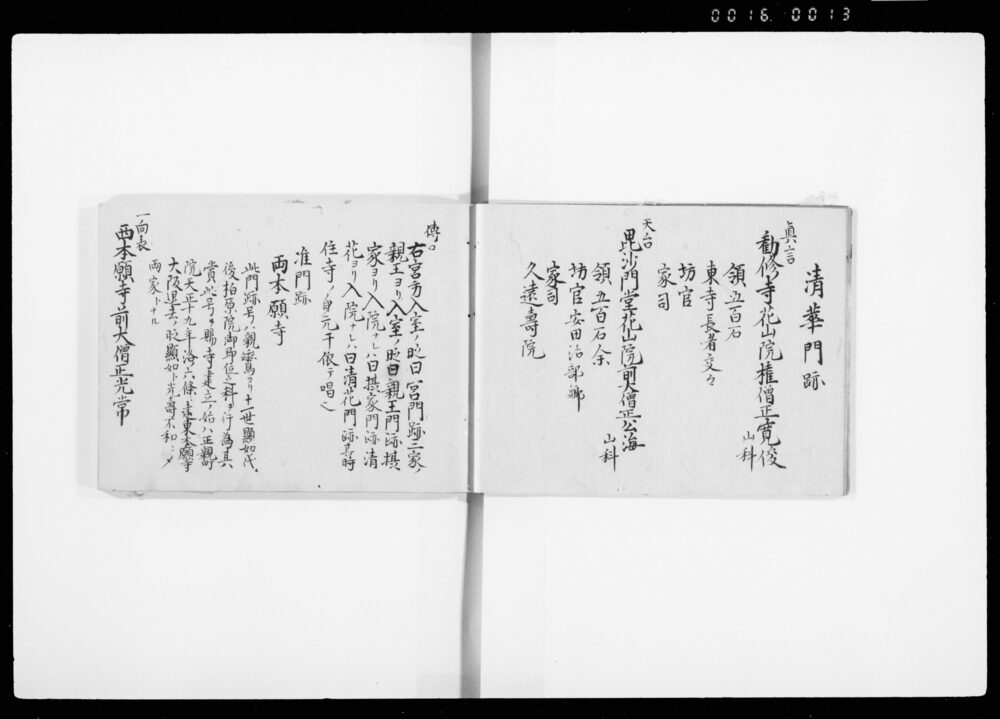 0016 0013
清華門跡
真言
勧修寺花山院権僧正寛俊
山科
領五百石
東寺長者交々
坊官
家司
天台
毘沙門堂花山院前大僧正公海
山科
領五百石余
坊官安田治部卿
家司
久遠壽院
傳ニ
右宮方入室ノ時曰宮門跡二家ノ
親王ヨリ入室ノ時曰親王門跡摂
家ヨリ入院ナレハ曰摂家門跡清
花ヨリ入院ナレハ曰清花門跡其時
住寺ノ身元ニ依テ唱之
准門跡
両本願寺
此門跡号ハ親鸞ヨリ十一世顕如代
後柏原院御即位之料ヲ行為其
賞此号ヲ賜寺建立ノ始ハ正親町
院天正十九年洛六條ニ遷東本願寺
大阪退去ノ時顕如ト光壽不和ニ〆
両家トナル
一向衣
西本願寺前大僧正光常